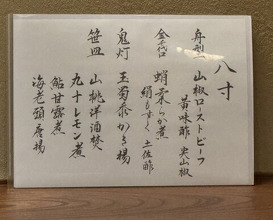 八寸
舟型 山椒ローストビーフ
黄味酢 実山椒
金千代口 蛸柔らか煮
絹もずく 土佐酢
鬼灯 玉蜀黍かき揚
笹皿 山桃洋酒煮
九十レモン煮
鮎甘露煮
海老頭唐揚